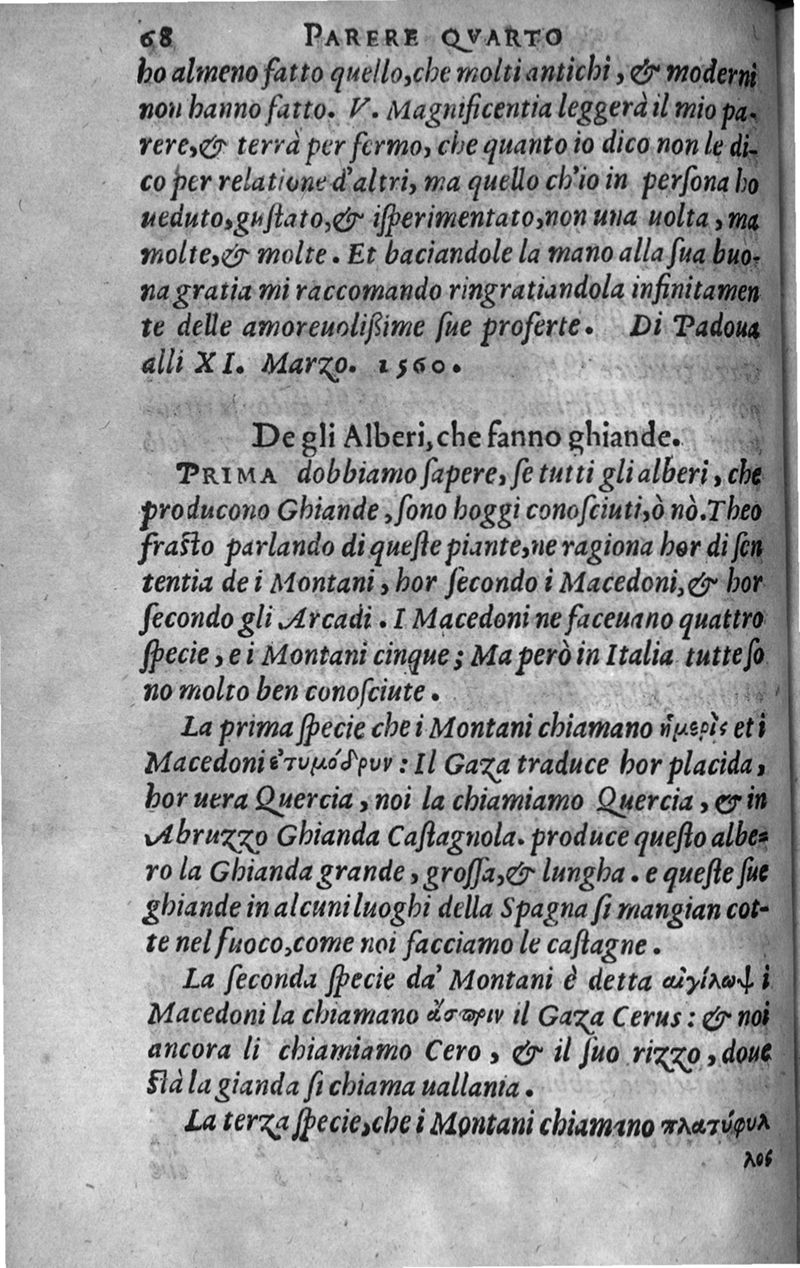 68 PARERE QVARTO
ho almeno fatto quello, che molti antichi, & moderni
non hanno fatto. V. Magnificentia leggerà il mio pa-
rere, & terrà per fermo, che quanto io dico non le di-
co per relatione d'altri, ma quello ch'io in perſona ho
ueduto, guſtato, & iſperimentato, non una uolta, ma
molte, & molte. Et baciandole la mano alla ſua buo-
na gratia mi raccomando ringratiandola infinitamen
te delle amoreuoliſſime ſue proferte. Di Padoua
alli XI. Marzo. 1560.
De gli Alberi, che fanno ghiande.
PRIMA dobbiamo ſapere, ſe tutti gli alberi, che
producono Ghiande, ſono hoggi conoſciuti, ò nò. Theo
fraſto parlando di queſte piante, ne ragiona hor di ſen
tentia de i Montani, hor ſecondo i Macedoni, & hor
ſecondo gli Arcadi. I Macedoni ne faceuano quattro
ſpecie, e i Montani cinque; Ma però in Italia tutte ſo
no molto ben conoſciute.
La prima ſpecie che i Montani chiamano ἡμερὶς et i
Macedoni ἐτυμόδρυν: Il Gaza traduce hor placida,
hor uera Quercia, noi la chiamiamo Quercia, & in
Abruzzo Ghianda Caſtagnola. produce queſto albe=
ro la Ghianda grande, groſſa, & lungha. e queſte ſue
ghiande in alcuni luoghi della Spagna ſi mangian cot-
te nel fuoco, come noi facciamo le caſtagne.
La ſeconda ſpecie da' Montani è detta αἰγίλωψ i
Macedoni la chiamano ἄσπριν il Gaza Cerus: & noi
ancora li chiamiamo Cero, & il ſuo rizzo, doue
ſtà la gianda ſi chiama uallania.
La terza ſpecie, che i Montani chiamano πλατύφυλ
λος